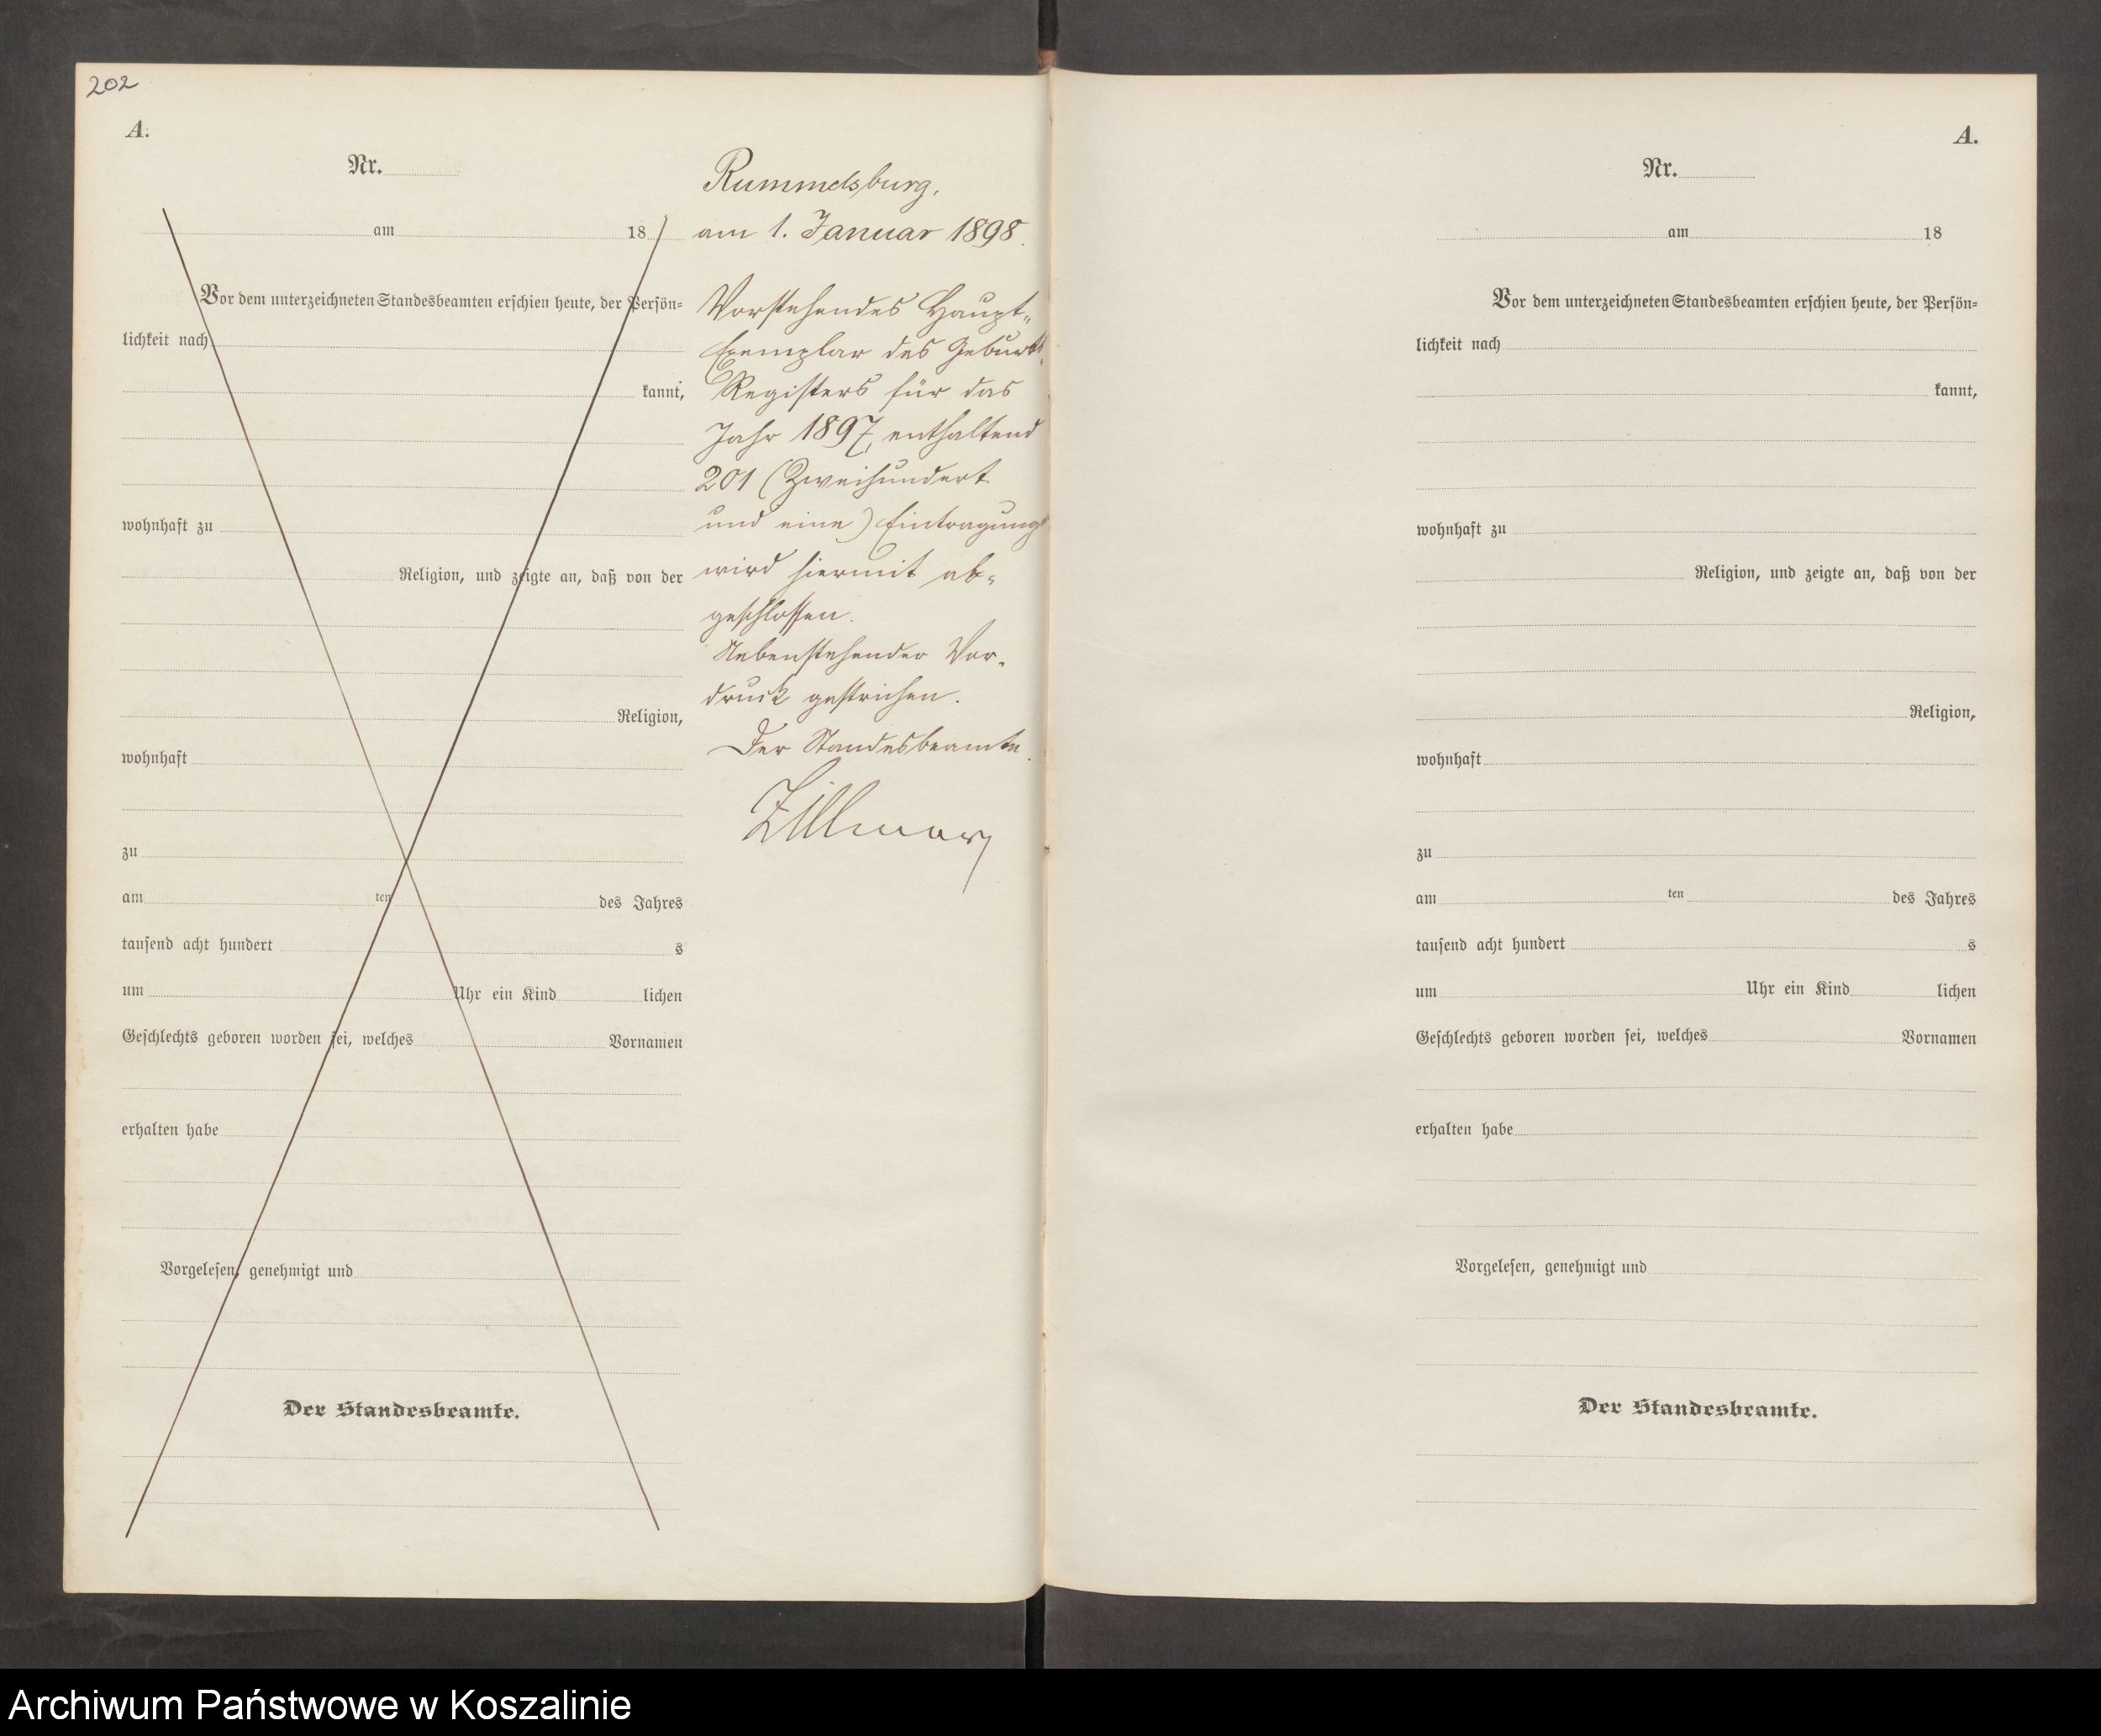 202
A.
Nr.
am 18
Vor dem unterzeichneten Standesbeamten erschien heute, der Persön=
lichkeit nach
kannt,
wohnhaft zu
Religion, und zeigte an, daß von der
Religion,
wohnhaft
zu
am ten des Jahres
tausend acht hundert s
um Uhr ein Kind lichen
Geschlechts geboren worden sei, welches Vornamen
erhalten habe
Vorgelesen, genehmigt und
Der Standesbeamte.
Rummelsburg,
am 1. Januar 1898.
Vorstehendes Haupt-
Exemplar des Geburts-
Registers für das
Jahr 1897, enthaltend
201 (Zweihundert
und eine) Eintragung
wird hiermit ab-
geschlossen.
Nebenstehender Vor-
druck gestrichen.
Der Standesbeamte.
A.
Nr.
am 18
Vor dem unterzeichneten Standesbeamten erschien heute, der Persön=
lichkeit nach
kannt,
wohnhaft zu
Religion, und zeigte an, daß von der
Religion,
wohnhaft
zu
am ten des Jahres
tausend acht hundert s
um Uhr ein Kind lichen
Geschlechts geboren worden sei, welches Vornamen
erhalten habe
Vorgelesen, genehmigt und
Der Standesbeamte.
Archiwum Państwowe w Koszalinie